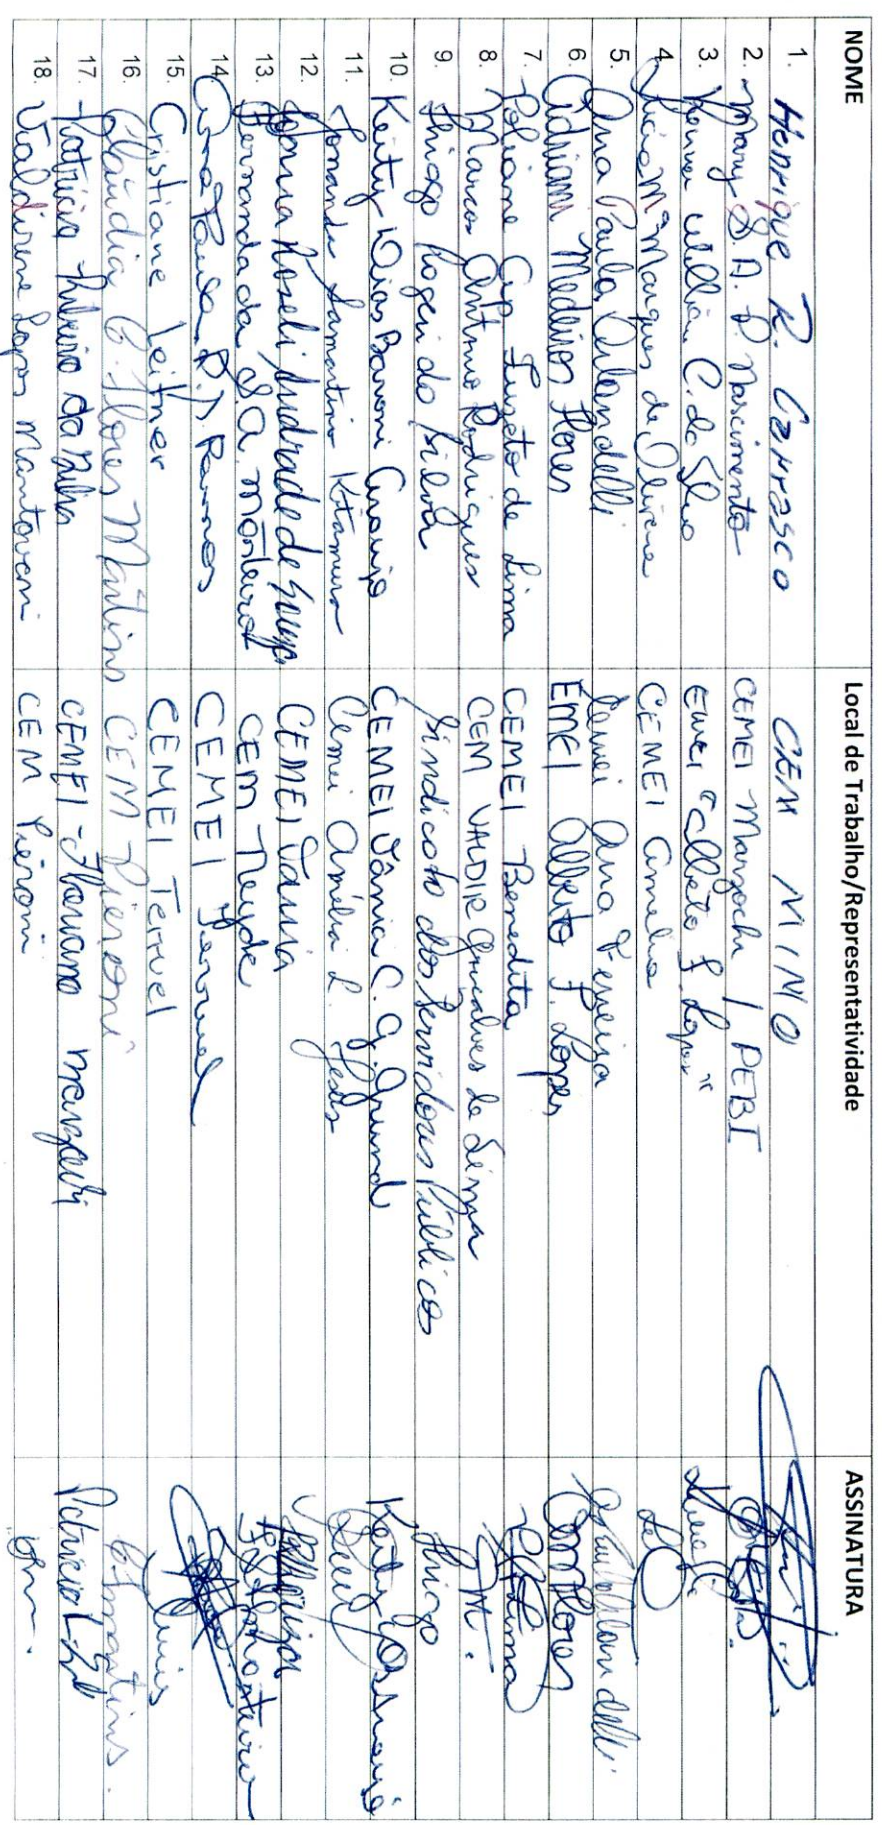 NOME Local de Trabalho/Representatividade ASSINATURA
1. Henrique R. Carrasco CEM MINO
2. Mary S. A. P. Nascimento CEMEI Marzochi / PEBI
3. C. da Silva EMEI "Alberto F. Lopes"
4. Lúcia Mª Marques de Oliveira CEMEI Amelia
5. Ana Paula Orlandelli Cemei Ana Ferreira
6. Adriani Medeiros Flores EMEI Alberto F. Lopes
7. Poliane Ap. Luzeto de Lima CEMEI Benedita
8. Marcos Antonio Rodrigues CEM VALDIR Gonçalves de Lima
9. Thiago Rogeri da Silva Sindicato dos Servidores Públicos Thiago
10. Keity Dias Baroni Araujo CEMEI Vânia C. G. Grund Keity
11. Fernanda Samartino Kitamura Cemei Amélia L. Jesus
12. Vania Roseli Andrade de Souza CEMEI Vania
13. Fernanda da S. A. Monteiro CEM Neyde Monteiro
14. Ana Paula R. J. Ramos CEMEI Terruel
15. Cristiane Leitner CEMEI Terruel
16. Cláudia C. Flores Martins CEM Pieroni C. F. Martins.
17. Patrícia Ribeiro da Silva CEMEI - Floriano Marzochi Patricia
18. Valdirene Lopes Mantovani CEM Pieroni